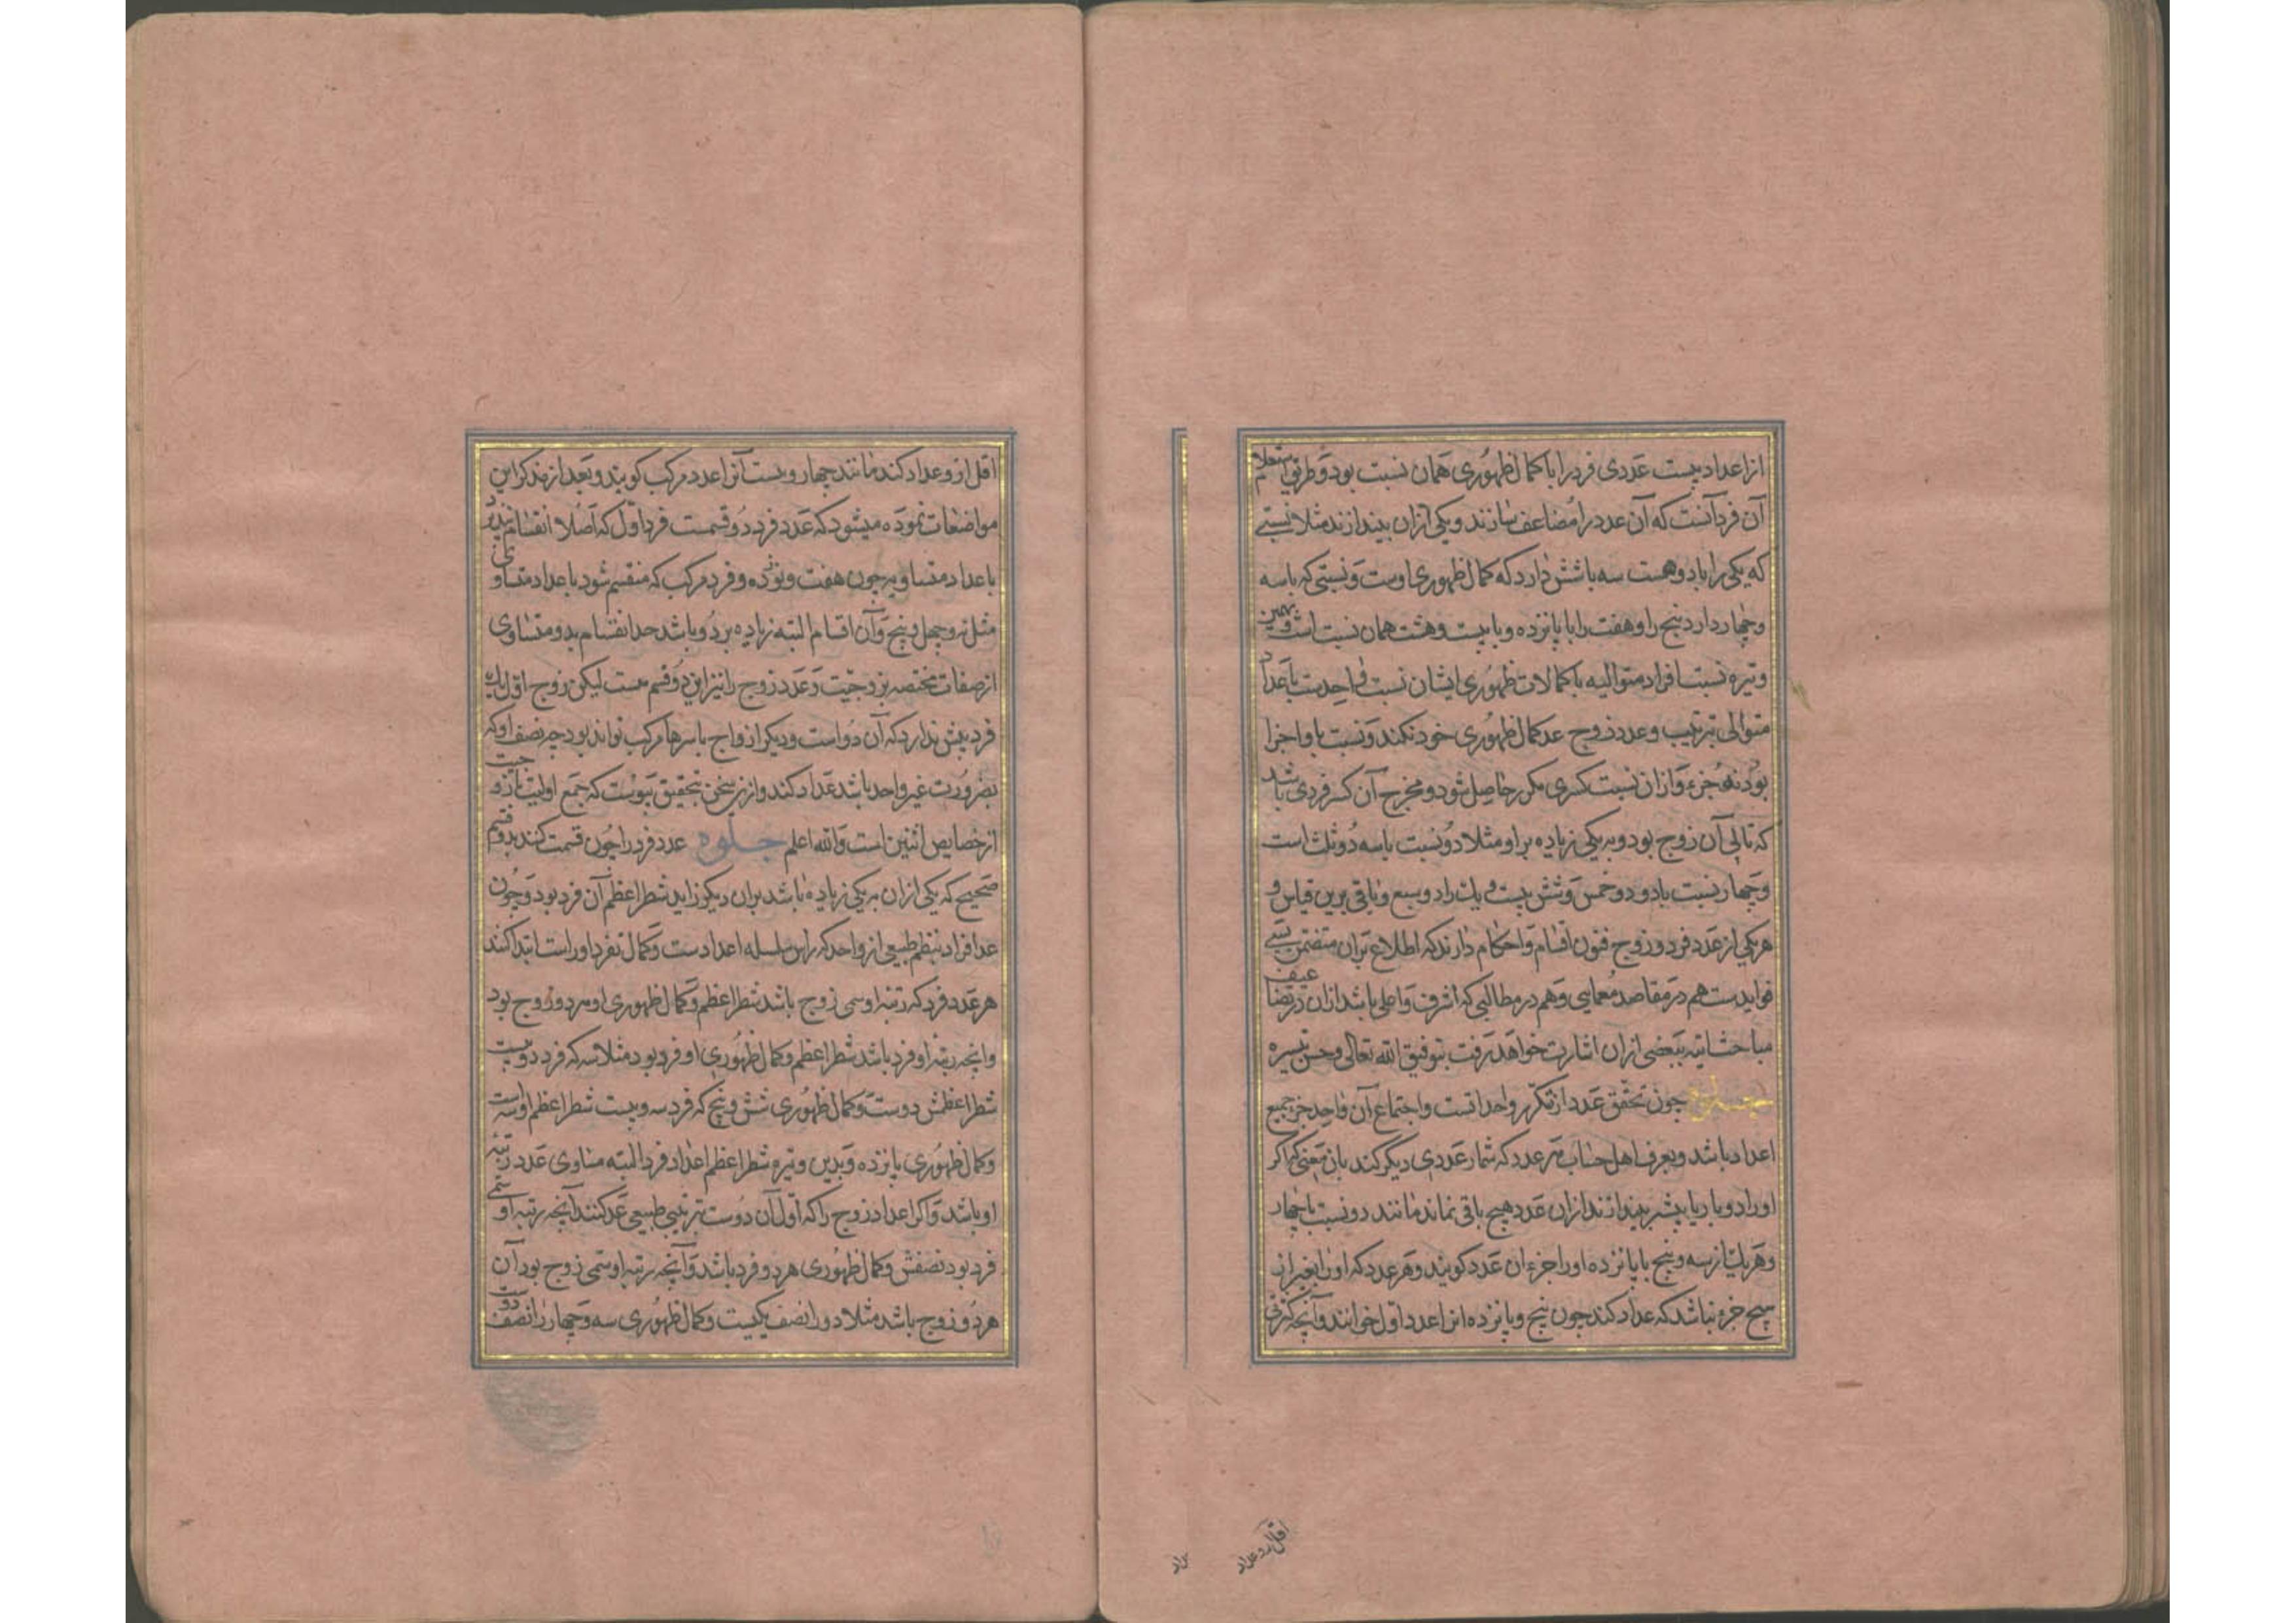 از اعداد بیست عددی فرد را با کمال ظهوری همان نسبت بود و طریق استعلام
آن فرد آنست که آن عدد را مضاعف سازند و یکی از ان بیندازند مثلا نسبتی
که یکی را با دو هست سه با شش دارد که کمال ظهوری اوست و نسبتی که با سه
و چهار دارد پنج را و هفت را با پانزده و با بیست و هشت همان نسبت است و بهمین
وتیره نسبت افراد متوالیه با کمالات ظهوری ایشان نسبت واحدست با عداد
متوالی بترتیب و عدد زوج عد کمال ظهوری خود نکند و نسبت با و اجزا
بود نه جزء و ازان نسبت کسری مکرر حاصل شود و مخرج آن کسر فردی باشد
که تالی آن زوج بود و به یکی زیاده بر او مثلا دو نسبت با سه دو ثلث است
و چهار نسبت با دو خمس و شش بیست و یک را دو سبع و باقی برین قیاس و
هر یکی از عدد فرد و زوج فنون اقسام و احکام دارند که اطلاع بران متضمن بسی
فوایدست هم در مقاصد معمایی و هم در مطالبی که اشرف و اعلی باشد ازان در تضاعیف
مباحث اتیه ببعضی ازان اشارت خواهد رفت بتوفیق الله تعالی و حسن تیسیره
چون تحقق عدد از تکرر واحد است و اجتماع آن واحد جزء جمیع
اعداد باشد و بعرف اهل حساب هر عدد که شمار عددی دیگر کند بان معنی که اکر
او را دو بار یا بیشتر بیندازند ازان عدد هیچ باقی نماند مانند دو نسبت با چهار
و هر یک از سه و پنج با پانزده او را جزء ان عدد کویند و هر عدد که او را بغیر از
هیچ جزء نباشد که عداد کند چون پنج و یا نزده انرا عدد اول خوانند و آنچه کثرتی
اقل ازو عداد
اقل ازو عداد کند مانند چهار و بیست آنرا عدد مرکب کویند و بعد از تذکر این
مواضعات نموده میشود که عدد فرد دو قسمت فرد اول که اصلا انقسام نپذیرد
با عداد متساویه چون هفت و نوزده و فرد مرکب که منقسم شود باعداد متساوی
مثل نه و چهل و پنج و آن اقسام البته زیاده بر دو باشد چه انقسام بدو متساوی
از صفات مختصه بزوجیت و عدد زوج را نیز این دو قسم هست لیکن زوج اول یک
فرد بیش ندارد که آن دو است و دیکر ازواج باسرها مرکب تواند بود چه نصف او که
بضرورت غیر واحد باشد عداد کند و ازین سخن بتحقیق پیوست که جمع اولیت با زوجیت
از خصایص اثنین است و الله اعلم جلوه عدد فرد را چون قسمت کنند بدو قسم
صحیح که یکی ازان به یکی زیاده باشد بران دیکر زاید شطر اعظم آن فرد بود و چون
عد افراد بنظم طبیعی از واحد که راس سلسله اعدادست و کمال تفرد او راست ابتدا کنند
هر عدد فرد که رتبه او سمی زوج باشد شطر اعظم و کمال ظهوری او هر دو زوج بود
و انچه رتبه او فرد باشد شطر اعظم و کمال ظهوری او فرد بود مثلا سه که فرد دویست
شطر اعظمش دوست و کمال ظهوری شش و پنج که فرد سویست شطر اعظم او سه است
و کمال ظهوری پانزده و بدین وتیره شطر اعظم اعداد فرد البته مساوی عدد رتبه
او باشد و اکر اعداد زوج را که اول آن دوست بترتیبی طبیعی عد کنند آنچه رتبه او سمی
فرد بود نصفش و کمال ظهوری هر دو فرد باشد و آنچه رتبه او سمی زوج بود آن
هر دو زوج باشد مثلا دو را نصف یکیست و کمال ظهوری سه و چهار را نصف دوست